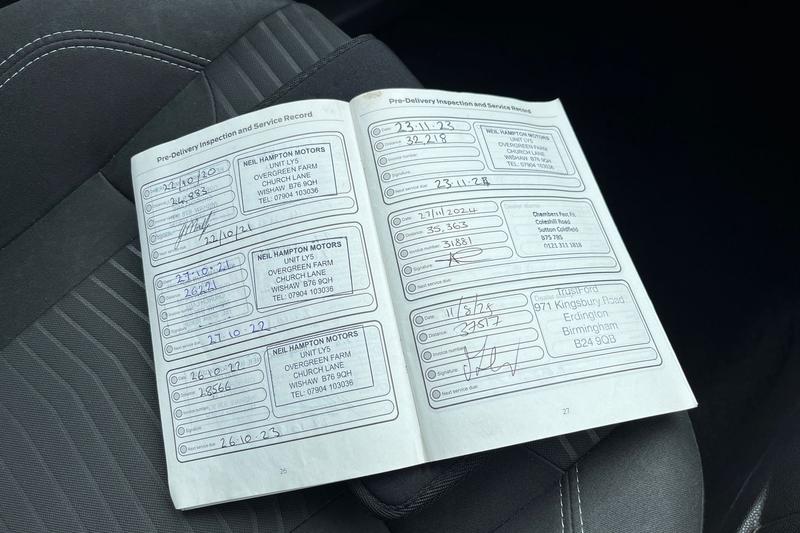 Pre-Delivery Inspection and Service Record
Date 22/10/20
Distance 24,883
Signature
Next service due 22/10/21
NEIL HAMPTON MOTORS
UNIT LY5
OVERGREEN FARM
CHURCH LANE
WISHAW B76 9QH
TEL: 07904 103036
Date 27·10·21
Distance 26221
Signature
Next service due 27·10·22
NEIL HAMPTON MOTORS
UNIT LY5
OVERGREEN FARM
CHURCH LANE
WISHAW B76 9QH
TEL: 07904 103036
Date 26·10·22
Distance 28566
Invoice number
Signature
Next service due 26·10·23
NEIL HAMPTON MOTORS
UNIT LY5
OVERGREEN FARM
CHURCH LANE
WISHAW B76 9QH
TEL: 07904 103036
26
Pre-Delivery Inspection and Service Record
Date 23·11·23
Distance 32,218
Invoice number
Signature
Next service due 23·11·24
NEIL HAMPTON MOTORS
UNIT LY5
OVERGREEN FARM
CHURCH LANE
WISHAW B76 9QH
TEL: 07904 103036
Date 27/11/2024
Distance 35,363
Invoice number 31881
Signature
Next service due
Chambers Fast Fit
Coleshill Road
Sutton Coldfield
B75 7BS
0121 311 1818
Date 11/8/25
Distance 37517
Invoice number
Signature
Next service due
TrustFord
971 Kingsbury Road
Erdington
Birmingham
B24 9QB
27